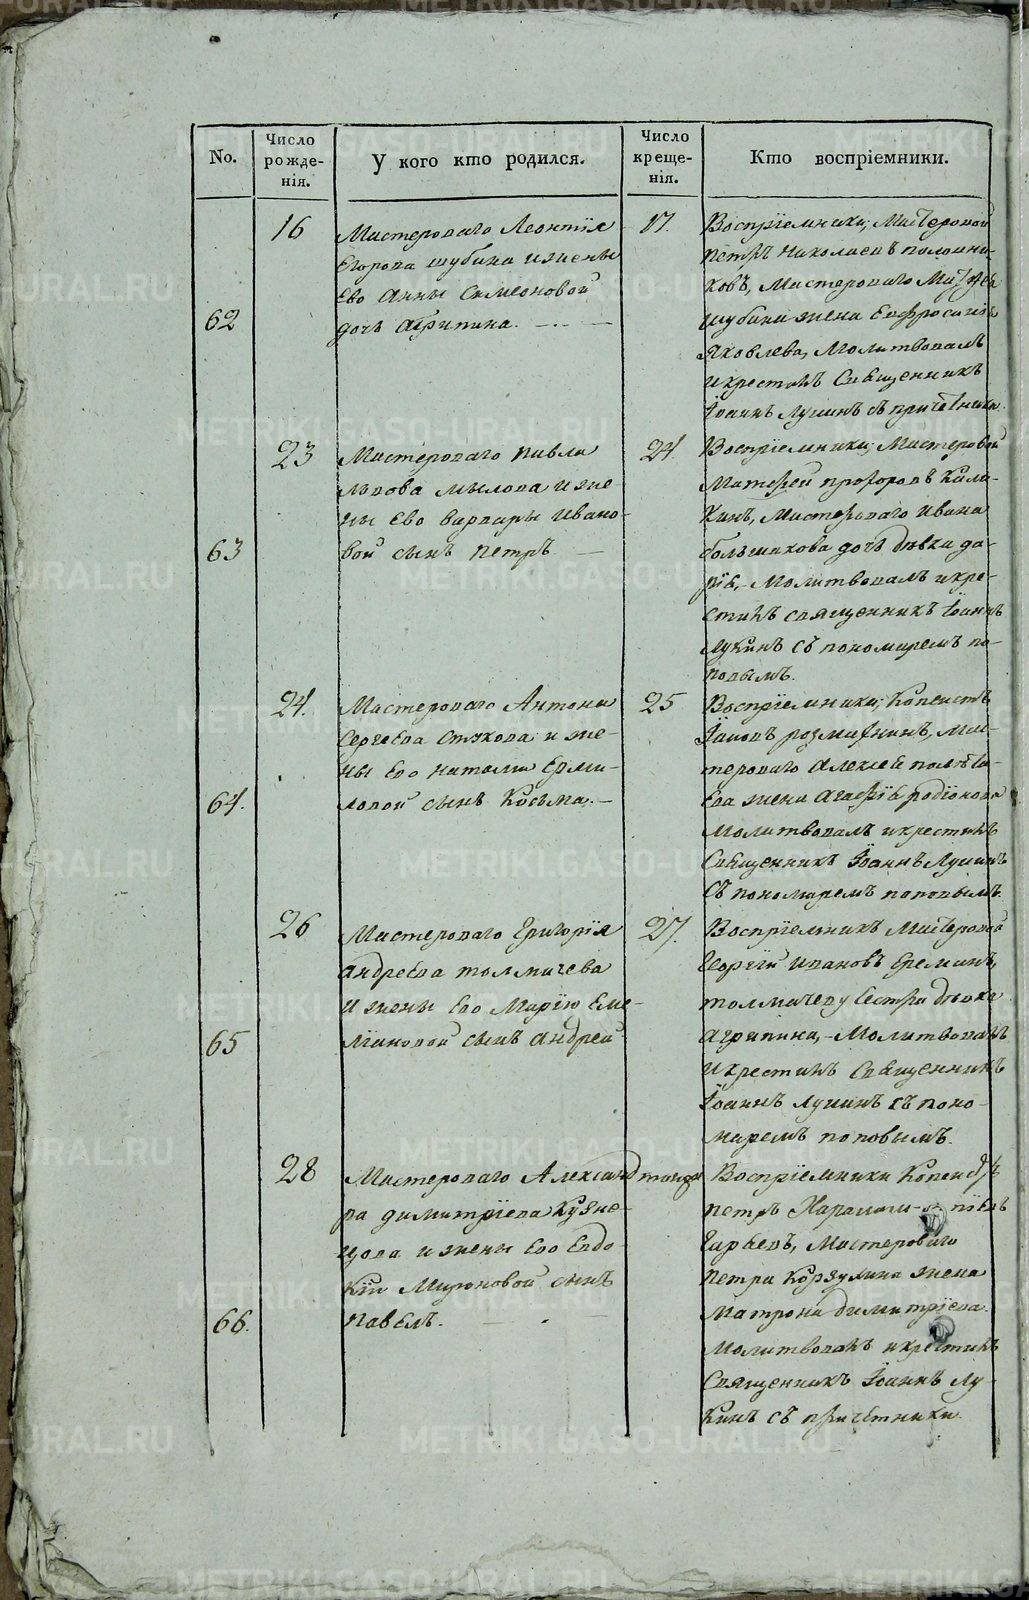 No.
Число рожде- нія.
У кого кто родился.
Число креще- нія.
Кто воспріемники.
62
16
Мастероваго Леонтія
Егорова шубина и жены
Ево Анны Симеоновой
дочь Агрипина.
17.
Воспріемники; Мастеровой
петръ Николаевъ половни-
ковъ, Мастероваго Матфея
шубина жена Евфросинія
Яковлева, Молитвовалъ
и крестилъ Священникъ
Іоаннъ Лукинъ съ причетники.
63
23
Мастероваго павла
львова мылова и же-
ны Ево варвары Ивано-
вой сынъ петръ
24.
Воспріемники; Мастеровой
Матфей прохоровъ Кала-
кинъ, Мастероваго Ивана
большакова дочь дѣвка да-
рія, Молитвовалъ и кре-
стилъ священникъ Іоаннъ
Лукинъ съ пономаремъ по-
повымъ.
64.
24.
Мастероваго Антона
Сергеева стукова и же-
ны Ево наталии Ерми-
ловой сынъ Косьма.
25
Воспріемники; Копеистъ
Іаковъ, Мас-
тероваго Алексѣя
Ева жена Агафія родіонова
Молитвовалъ и крестилъ
Священникъ Іоаннъ Лукинъ
съ пономаремъ поповымъ.
65
26
Мастероваго Григорія
андреева толмачева
и жены Ево Марію Еме-
ліановой сынъ андрей
27.
Воспріемникъ Мастеровой
Георгій Ивановъ Ереминъ,
толмачеву сестра дѣвка
агрипина, Молитвовалъ
и крестилъ Священникъ
Іоаннъ Лукинъ съ поно-
маремъ поповымъ.
66.
28
Мастероваго Александ
ра димитріева Кузне-
цова и жены Ево Евдо-
кіи Мироновой сынъ
павелъ.
тогож
Воспріемники
петръ
, Мастероваго
петра Корзулина жена
Матрона димитріева.
Молитвовалъ и крестилъ
Священникъ Іоаннъ Лу-
кинъ съ причетники.
METRIKI.GASO-URAL.RU